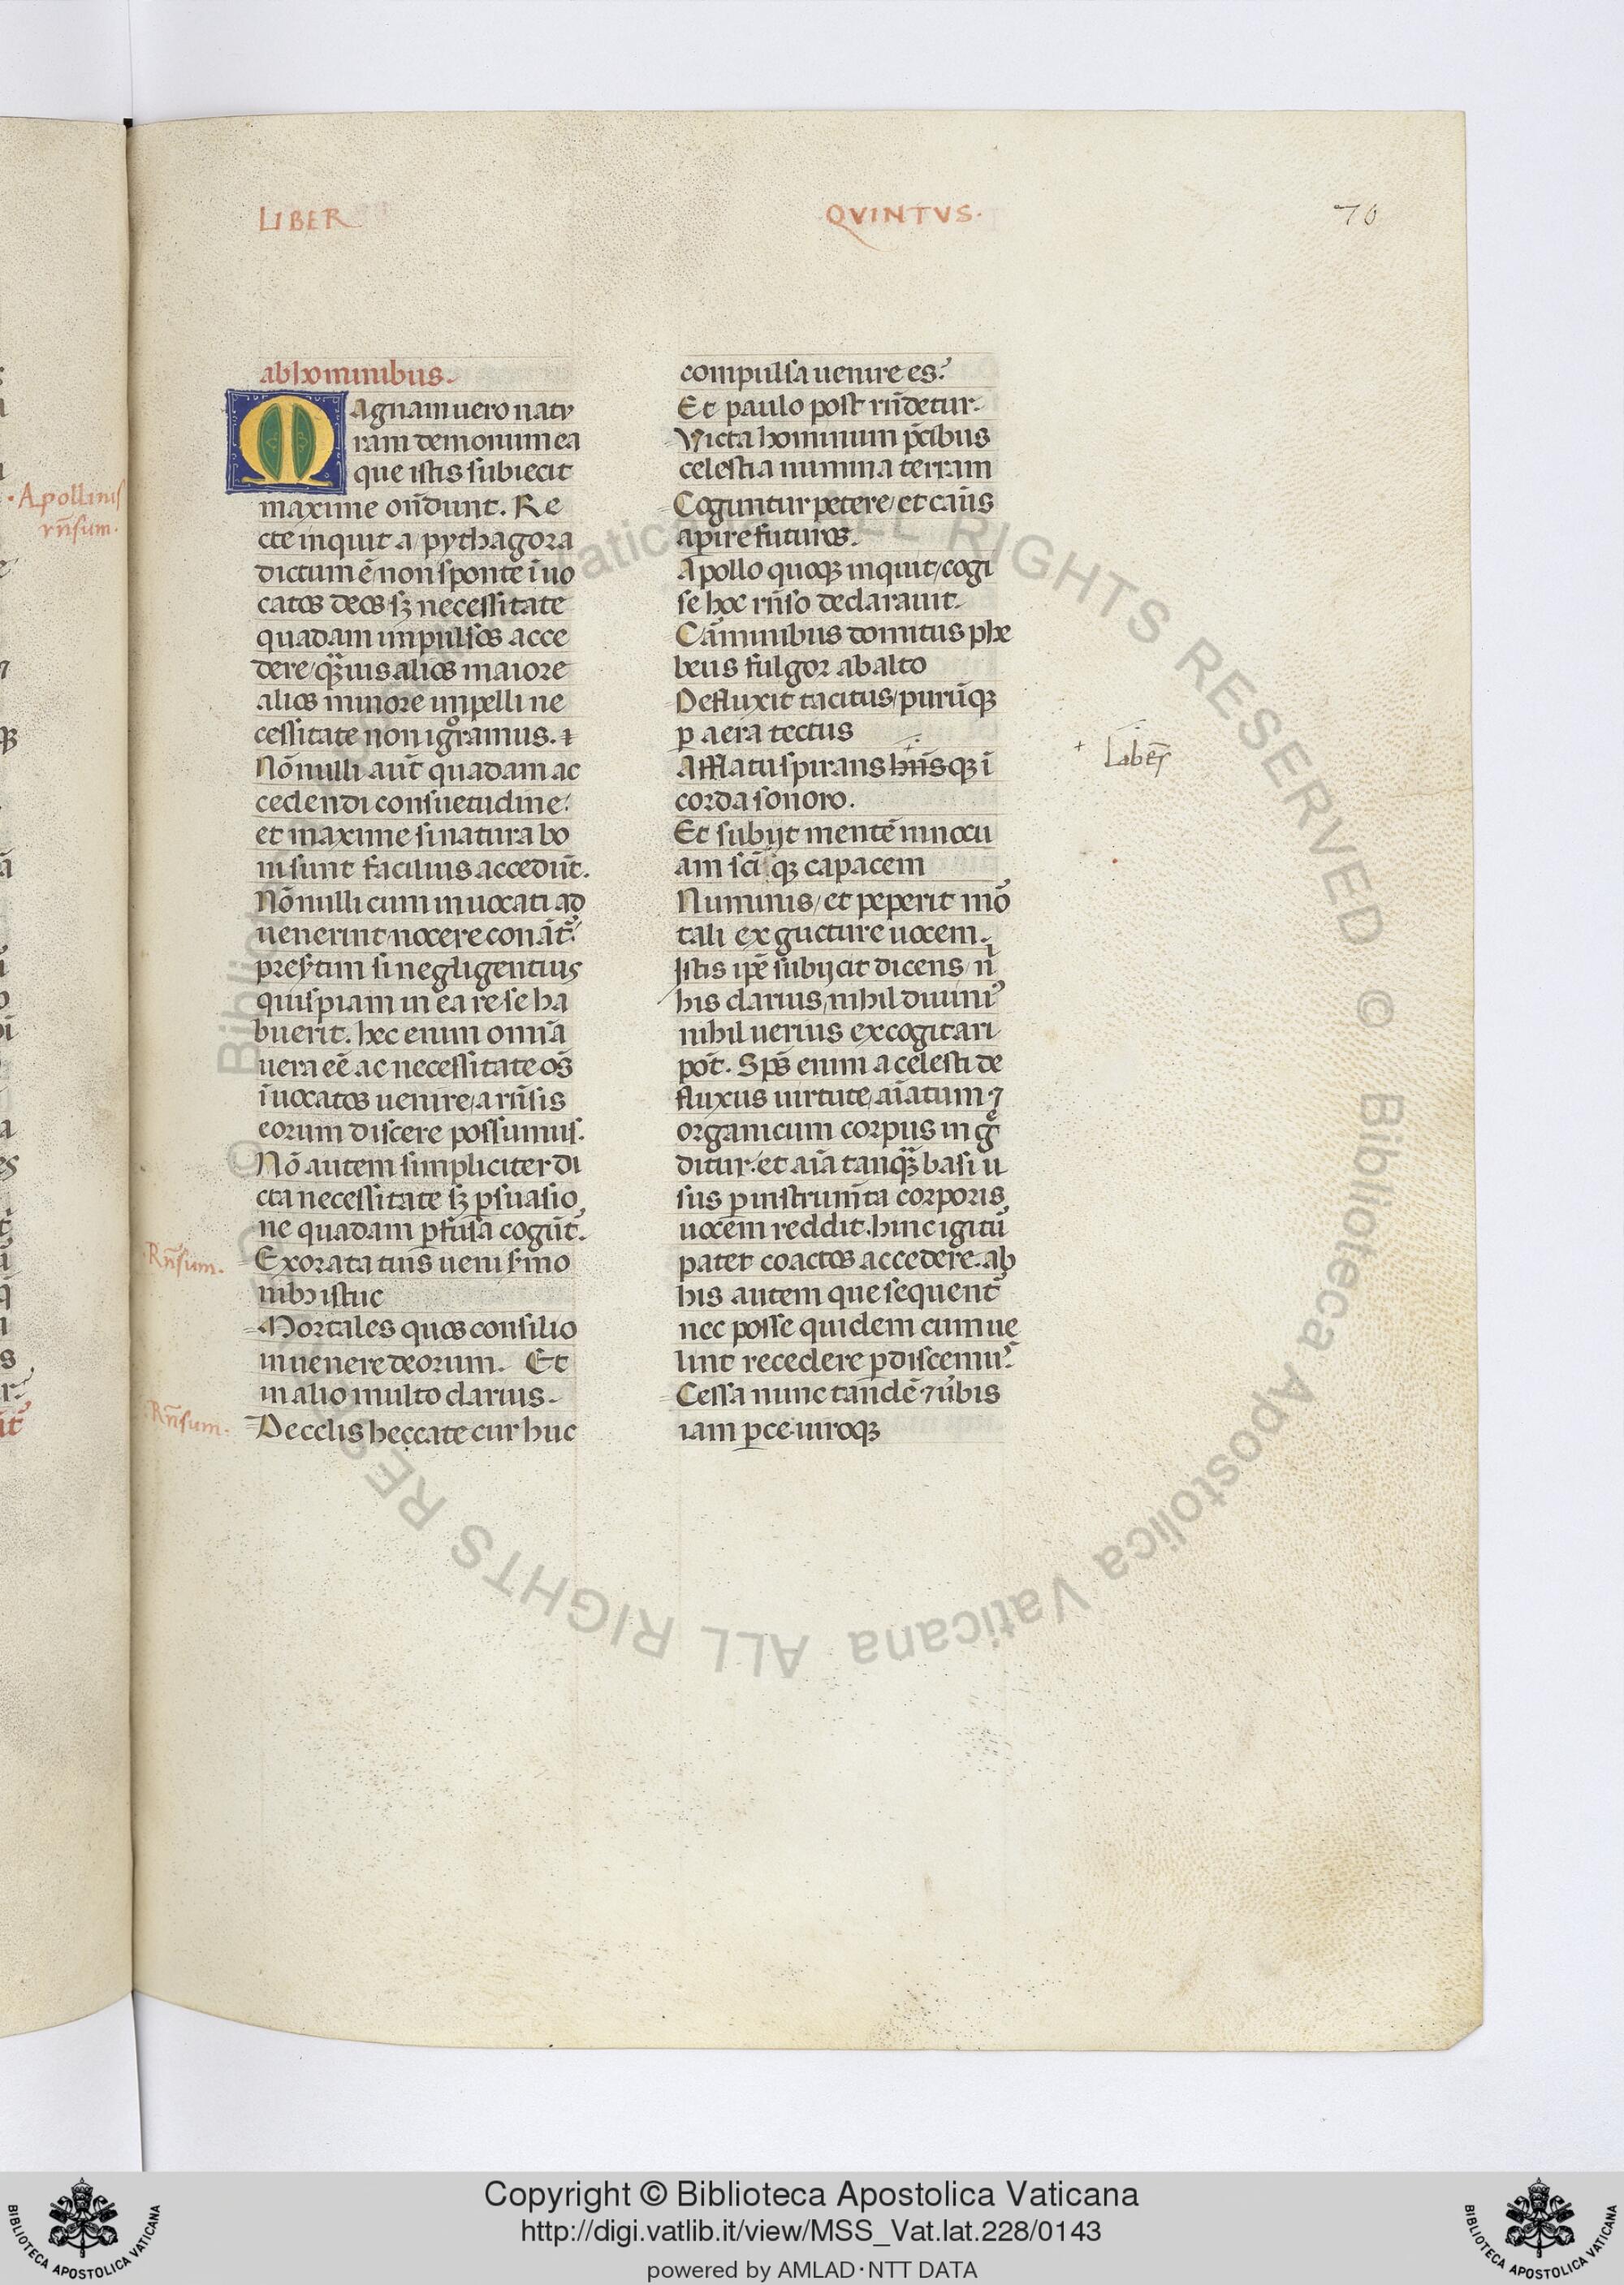 LIBER
QVINTVS.
70
ab hominibus.
Magnam uero natu
ram demonum ea
que istis subiecit
maxime oñdunt. Re
cte inquit a pythagora
dictum ē non sponte īuo
catos deos sꝫ necessitate
quadam impulsos acce
dere
alios minore impelli ne
cessitate non igͦramus. ⁊
Nōnulli aut̄ quadam ac
cedendi consuetudine:
et maxime si natura bo
ni sunt facilius accedūt.
Nōnulli cum inuocati ad
uenerint nocere conāt᷑:
presertim si negligentius
quispiam in ea re se ha
buerit. hec enim omīa
uera eē ac necessitate oēs
īuocatos uenire a rn̄sis
eorum discere possumus.
Nō autem simpliciter di
cta necessitate sꝫ ꝑsuasio
ne quadam cogūt᷑.
Exorata tuis ueni
istuc
Mortales quos consilio
inuenere deorum. Et
in alio multo clarius.
De celis heccate cur huc
Rn̄sum.
Rn̄sum.
compulsa uenire es?
Et paulo post rn̄detur.
Victa hominum p̄cibus
celestia numina terram
Coguntur petere et
futuros.
Apollo quoqꝫ inquit cogi
se hoc rn̄so declarauit.
Cām̄inibus domitus phe
beus fulgor ab alto
Defluxit tacitus purūqꝫ
ꝑ aera tectus
Afflatu spirans ī
corda sonoro.
Et subijt mentē innocu
am capacem
Numinis et peperit mō
tali ex gucture uocem.
Istis ipē subijcit dicens
his clarius nihil diuini᷒
nihil uerius excogitari
pōt. Sps̄ enim a celesti de
fluxus uirtute aīatum ⁊
organicum corpus ingͤ
ditur et aīa tanqꝫ basi u
sus ꝑ instrum̄ta corporis
uocem reddit. hinc igitur̄
patet coactos accedere. ab
his autem que sequent᷑
nec posse quidem cum ue
lint recedere ꝑdiscemu᷒.
Cessa nunc tandē
iam ꝑce uiroqꝫ
Apollinis
rn̄sum.
© Biblioteca Apostolica Vaticana ALL RIGHTS RESERVED © Biblioteca Apostolica Vaticana ALL RIGHTS RESERVED
Copyright © Biblioteca Apostolica Vaticana
http://digi.vatlib.it/view/MSS_Vat.lat.228/0143
powered by AMLAD·NTT DATA
BIBLIOTECA APOSTOLICA VATICANA
BIBLIOTECA APOSTOLICA VATICANA